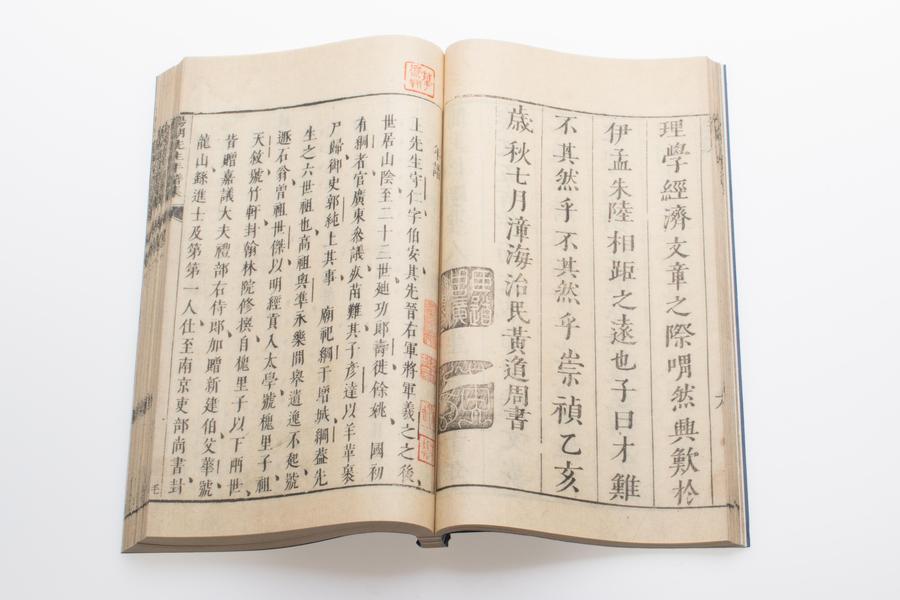 理學經濟文章之際喟然興歎於
伊孟朱陸相距之遠也子曰才難
不其然乎不其然乎崇禎乙亥
歲秋七月漳海治民黃道周書
年譜
上先生守仁字伯安其先晉右軍將軍羲之之後
世居山陰至二十三世廸功郎壽徙餘姚 國初
有綱者官廣東參議歿苗難其子彥達以羊革裹
尸歸御史郭純上其事 廟祀綱于增城綱葢先
生之六世祖也高祖與準永樂間舉遺逸不起號
遯石翁曾祖世傑以明經貢入太學號槐里子祖
天敘號竹軒封翰林院修撰自槐里子以下兩世
皆贈嘉議大夫禮部右侍郎加贈新建伯父華號
龍山進士及第第一人仕至南京吏部尚書封